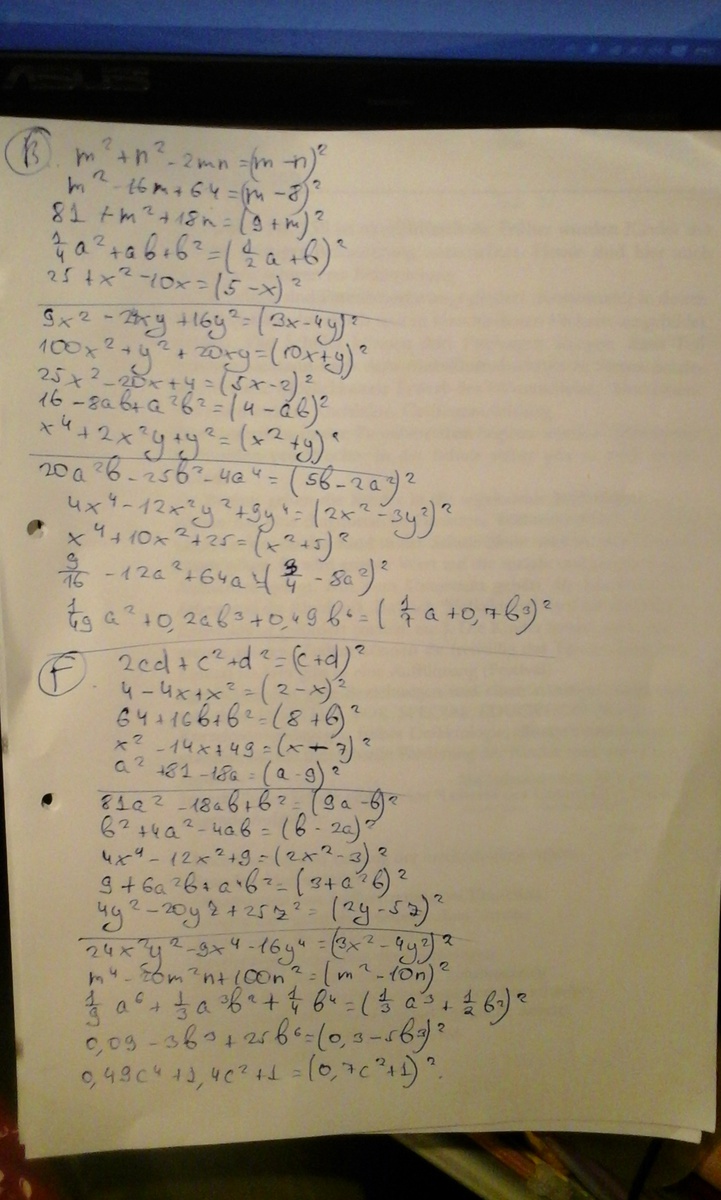 ASUS
В. m² + n² - 2mn = (m - n)²
m² - 16m + 64 = (m - 8)²
81 + m² + 18m = (9 + m)²
1/4 a² + ab + b² = (1/2 a + b)²
25 + x² - 10x = (5 - x)²
9x² - 24xy + 16y² = (3x - 4y)²
100x² + y² + 20xy = (10x + y)²
25x² - 20x + 4 = (5x - 2)²
16 - 8ab + a²b² = (4 - ab)²
x⁴ + 2x²y + y² = (x² + y)²
20a²b - 25b² - 4a⁴ = (5b - 2a²)²
4x⁴ - 12x²y² + 9y⁴ = (2x² - 3y²)²
x⁴ + 10x² + 25 = (x² + 5)²
9/16 - 12a² + 64a⁴ = (3/4 - 8a²)²
1/49 a² + 0,2ab³ + 0,49b⁶ = (1/7 a + 0,7b³)²
Г. 2cd + c² + d² = (c + d)²
4 - 4x + x² = (2 - x)²
64 + 16b + b² = (8 + b)²
x² - 14x + 49 = (x - 7)²
a² + 81 - 18a = (a - 9)²
81a² - 18ab + b² = (9a - b)²
b² + 4a² - 4ab = (b - 2a)²
4x⁴ - 12x² + 9 = (2x² - 3)²
9 + 6a²b + a⁴b² = (3 + a²b)²
4y² - 20yz + 25z² = (2y - 5z)²
24x²y² - 9x⁴ - 16y⁴ = (3x² - 4y²)²
m⁴ - 20m²n + 100n² = (m² - 10n)²
1/9 a⁶ + 1/3 a³b² + 1/4 b⁴ = (1/3 a³ + 1/2 b²)²
0,09 - 3b³ + 25b⁶ = (0,3 - 5b³)²
0,49c⁴ + 1,4c² + 1 = (0,7c² + 1)².